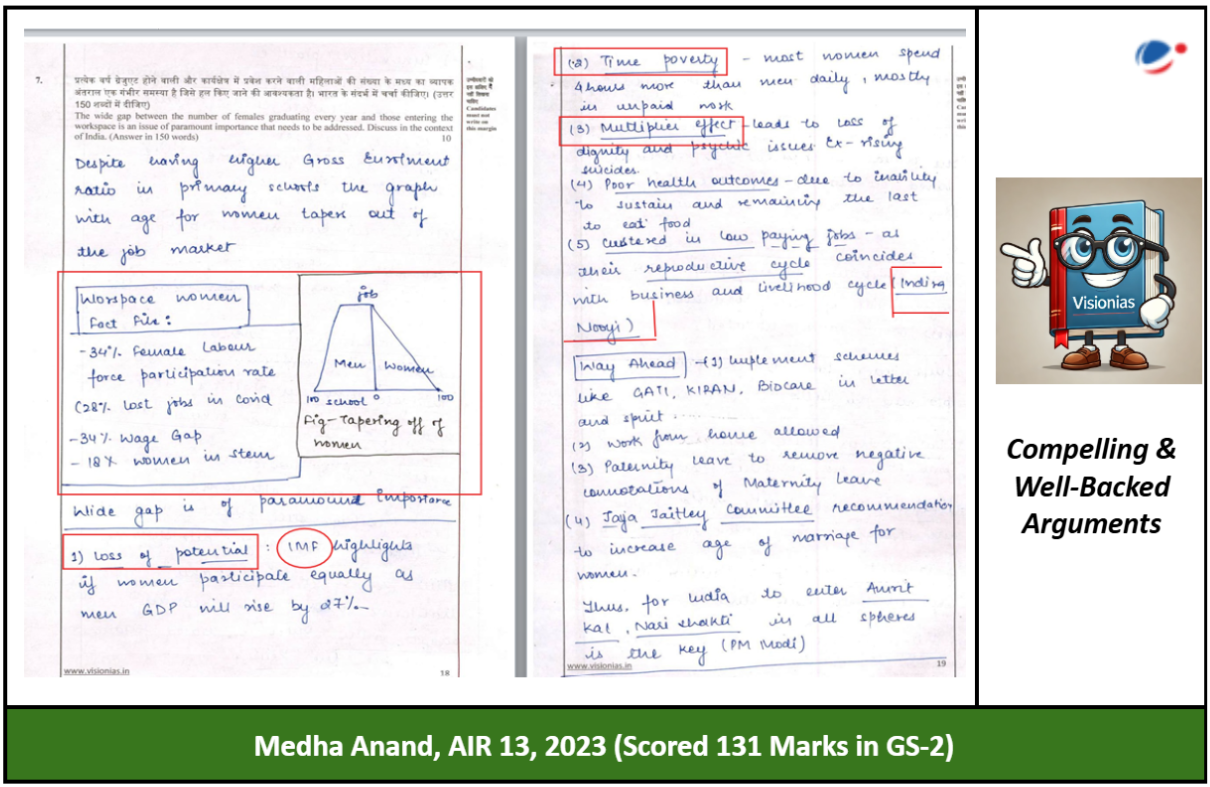 7. प्रत्येक वर्ष ग्रेजुएट होने वाली और कार्यक्षेत्र में प्रवेश करने वाली महिलाओं की संख्या के मध्य का व्यापक
अंतराल एक गंभीर समस्या है जिसे हल किए जाने की आवश्यकता है। भारत के संदर्भ में चर्चा कीजिए। (उत्तर
150 शब्दों में दीजिए)
The wide gap between the number of females graduating every year and those entering the
workspace is an issue of paramount importance that needs to be addressed. Discuss in the context
of India. (Answer in 150 words) 10
उम्मीदवारों को
इस हाशिए में
नहीं लिखना
चाहिए
Candidates
must not
write on
this margin
Despite having higher Gross Enrolment
ratio in primary schools the graph
with age for women tapers out of
the job market
Worspace women
Fact File:
-34% Female Labour
force participation rate
(28% lost jobs in Covid
-34% Wage Gap
- 18% women in stem
job
Men Women
100 school 0 100
Fig-Tapering off of
women
Wide gap is of paramound Importance
1) Loss of potential : IMF highlights
if women participate equally as
men GDP will rise by 27%.
www.visionias.in 18
(2) Time poverty - most women spend
4 hours more than men daily, mostly
in unpaid work
(3) Multiplier effect - leads to loss of
dignity and psychic issues Ex-rising
suicides.
(4) Poor health outcomes - due to inability
to sustain and remaining the last
to eat food
(5) Clustered in low paying jobs - as
their reproductive cycle coincides
with business and livelihood cycle (Indira
Nooyi)
Way Ahead - (1) Implement schemes
like GATI, KIRAN, Biocare in letter
and spirit.
(2) Work from home allowed
(3) Paternity leave to remove negative
connotations of Maternity Leave
(4) Jaya Jaitley Committee recommendation
to increase age of marriage for
women.
Thus, for India to enter Amrit
Kal, Nari Shakti in all spheres
is the key (PM Modi)
www.visionias.in 19
Visionias
Compelling &
Well-Backed
Arguments
Medha Anand, AIR 13, 2023 (Scored 131 Marks in GS-2)